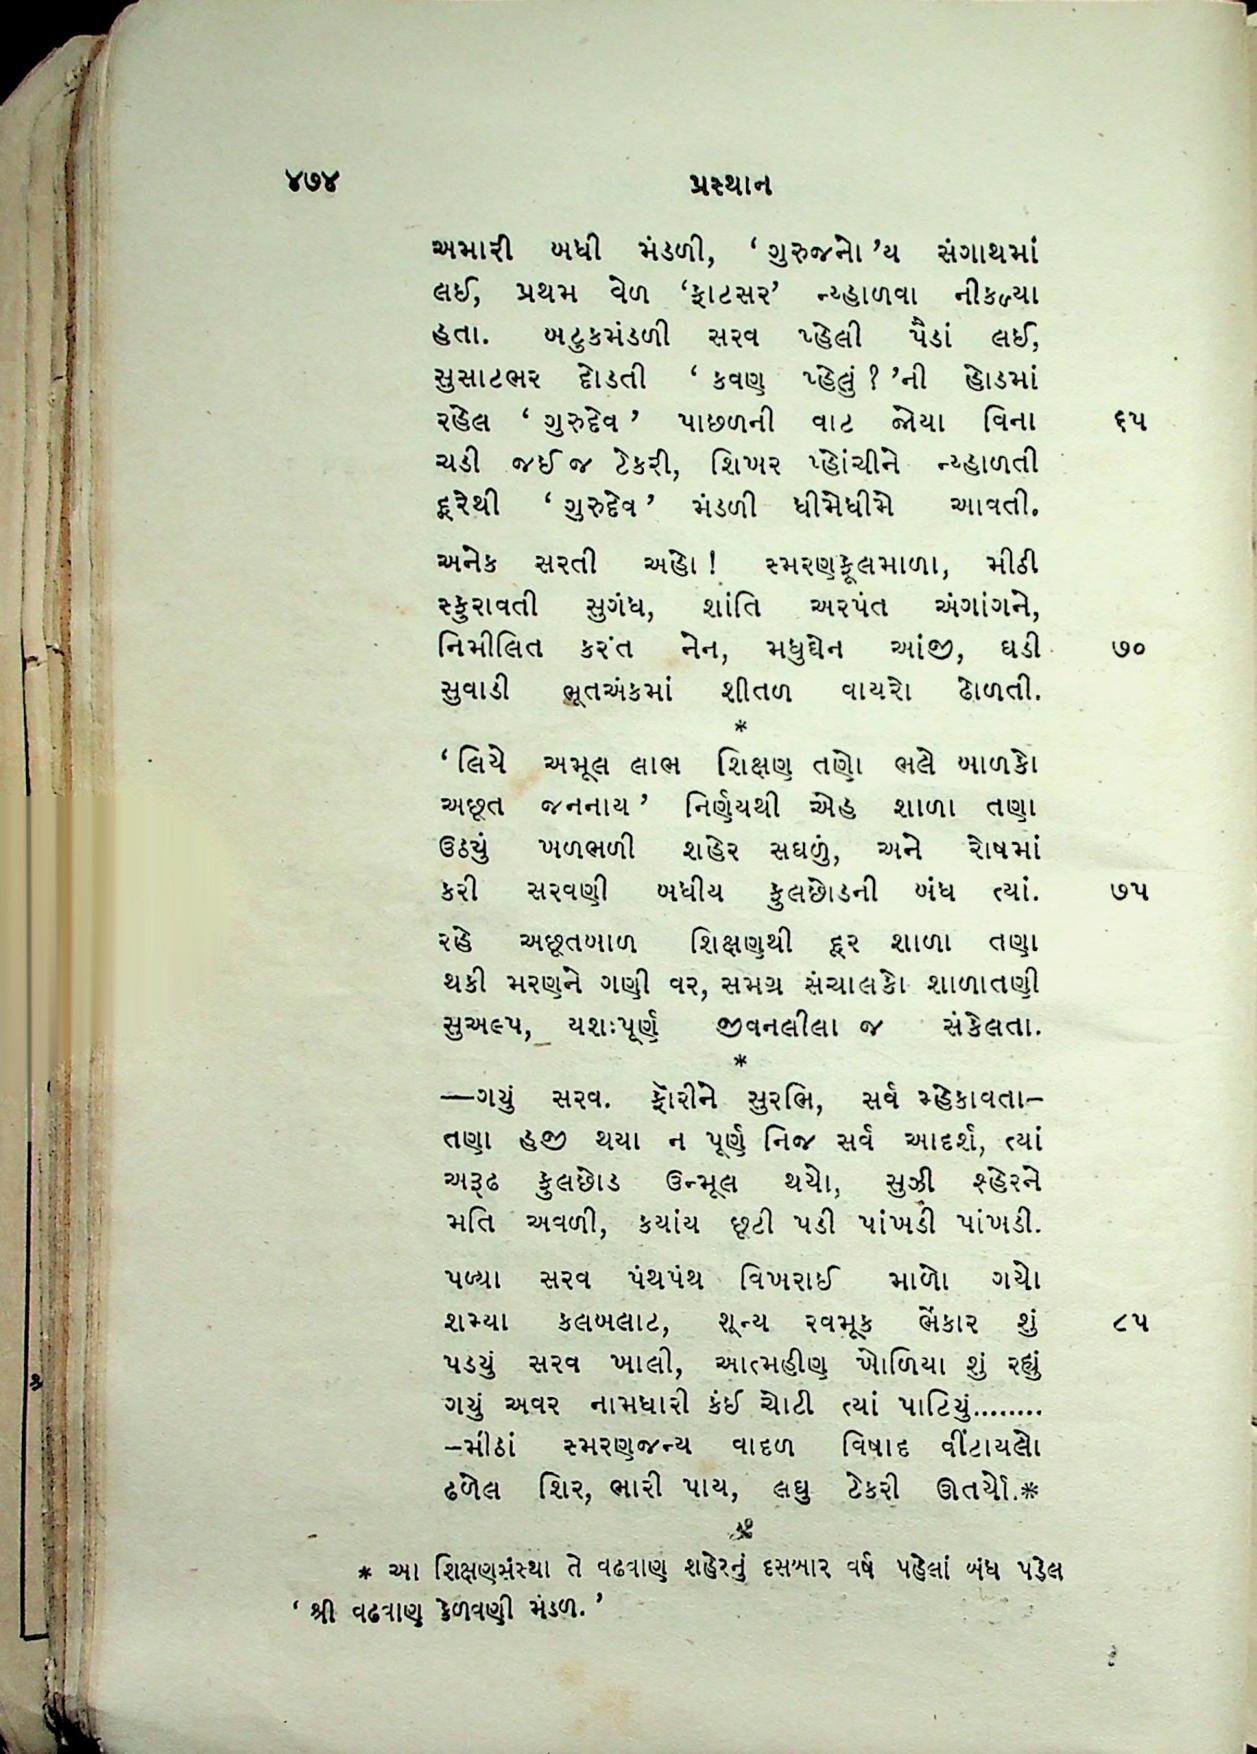 ૪૭૪ પ્રસ્થાન
અમારી બધી મંડળી, ‘ગુરુજનો’ય સંગાથમાં
લઈ, પ્રથમ વેળ ‘ફાટસર’ ન્ય્હાળવા નીકળ્યા
હતા. બટુકમંડળી સરવ પ્હેલી પૈડાં લઈ,
સુસાટભર દોડતી ‘કવણ પ્હેલું?’ની હોડમાં
રહેલ ‘ગુરુદેવ’ પાછળની વાટ જોયા વિના ૬૫
ચડી જઈ જ ટેકરી, શિખર પ્હોંચીને ન્ય્હાળતી
દૂરેથી ‘ગુરુદેવ’ મંડળી ધીમેધીમે આવતી.
અનેક સરતી અહો! સ્મરણફૂલમાળા, મીઠી
સ્ફુરાવતી સુગંધ, શાંતિ અરપંત અંગાંગને,
નિમીલિત કરંત નેન, મધુઘેન આંજી, ઘડી ૭૦
સુવાડી ભૂતઅંકમાં શીતળ વાયરો ઢોળતી.
*
‘લિયે અમૂલ લાભ શિક્ષણ તણો ભલે બાળકો
અછૂત જનનાય’ નિર્ણયથી એહ શાળા તણા
ઉઠયું ખળભળી શહેર સઘળું, અને રોષમાં
કરી સરવણી બધીય ફુલછોડની બંધ ત્યાં. ૭૫
રહે અછૂતબાળ શિક્ષણથી દૂર શાળા તણા
થકી મરણને ગણી વર, સમગ્ર સંચાલકો શાળાતણી
સુઅલ્પ, યશઃપૂર્ણ જીવનલીલા જ સંકેલતા.
*
—ગયું સરવ. ફૉરીને સુરભિ, સર્વ મ્હેકાવતા–
તણા હજી થયા ન પૂર્ણ નિજ સર્વ આદર્શ, ત્યાં
અરૂઢ ફુલછોડ ઉન્મૂલ થયો, સુઝી શ્હેરને
મતિ અવળી, કયાંય છૂટી પડી પાંખડી પાંખડી.
પળ્યા સરવ પંથપંથ વિખરાઈ માળો ગયો
શમ્યા કલબલાટ, શૂન્ય રવમૂક ભેંકાર શું ૮૫
પડયું સરવ ખાલી, આત્મહીણ ખોળિયા શું રહ્યું
ગયું અવર નામધારી કંઈ ચોટી ત્યાં પાટિયું........
–મીઠાં સ્મરણજન્ય વાદળ વિષાદ વીંટાયલો
ઢળેલ શિર, ભારી પાય, લઘુ ટેકરી ઊતર્યો.*
* આ શિક્ષણસંસ્થા તે વઢવાણ શહેરનું દસબાર વર્ષ પહેલાં બંધ પડેલ
‘શ્રી વઢવાણ કેળવણી મંડળ.’